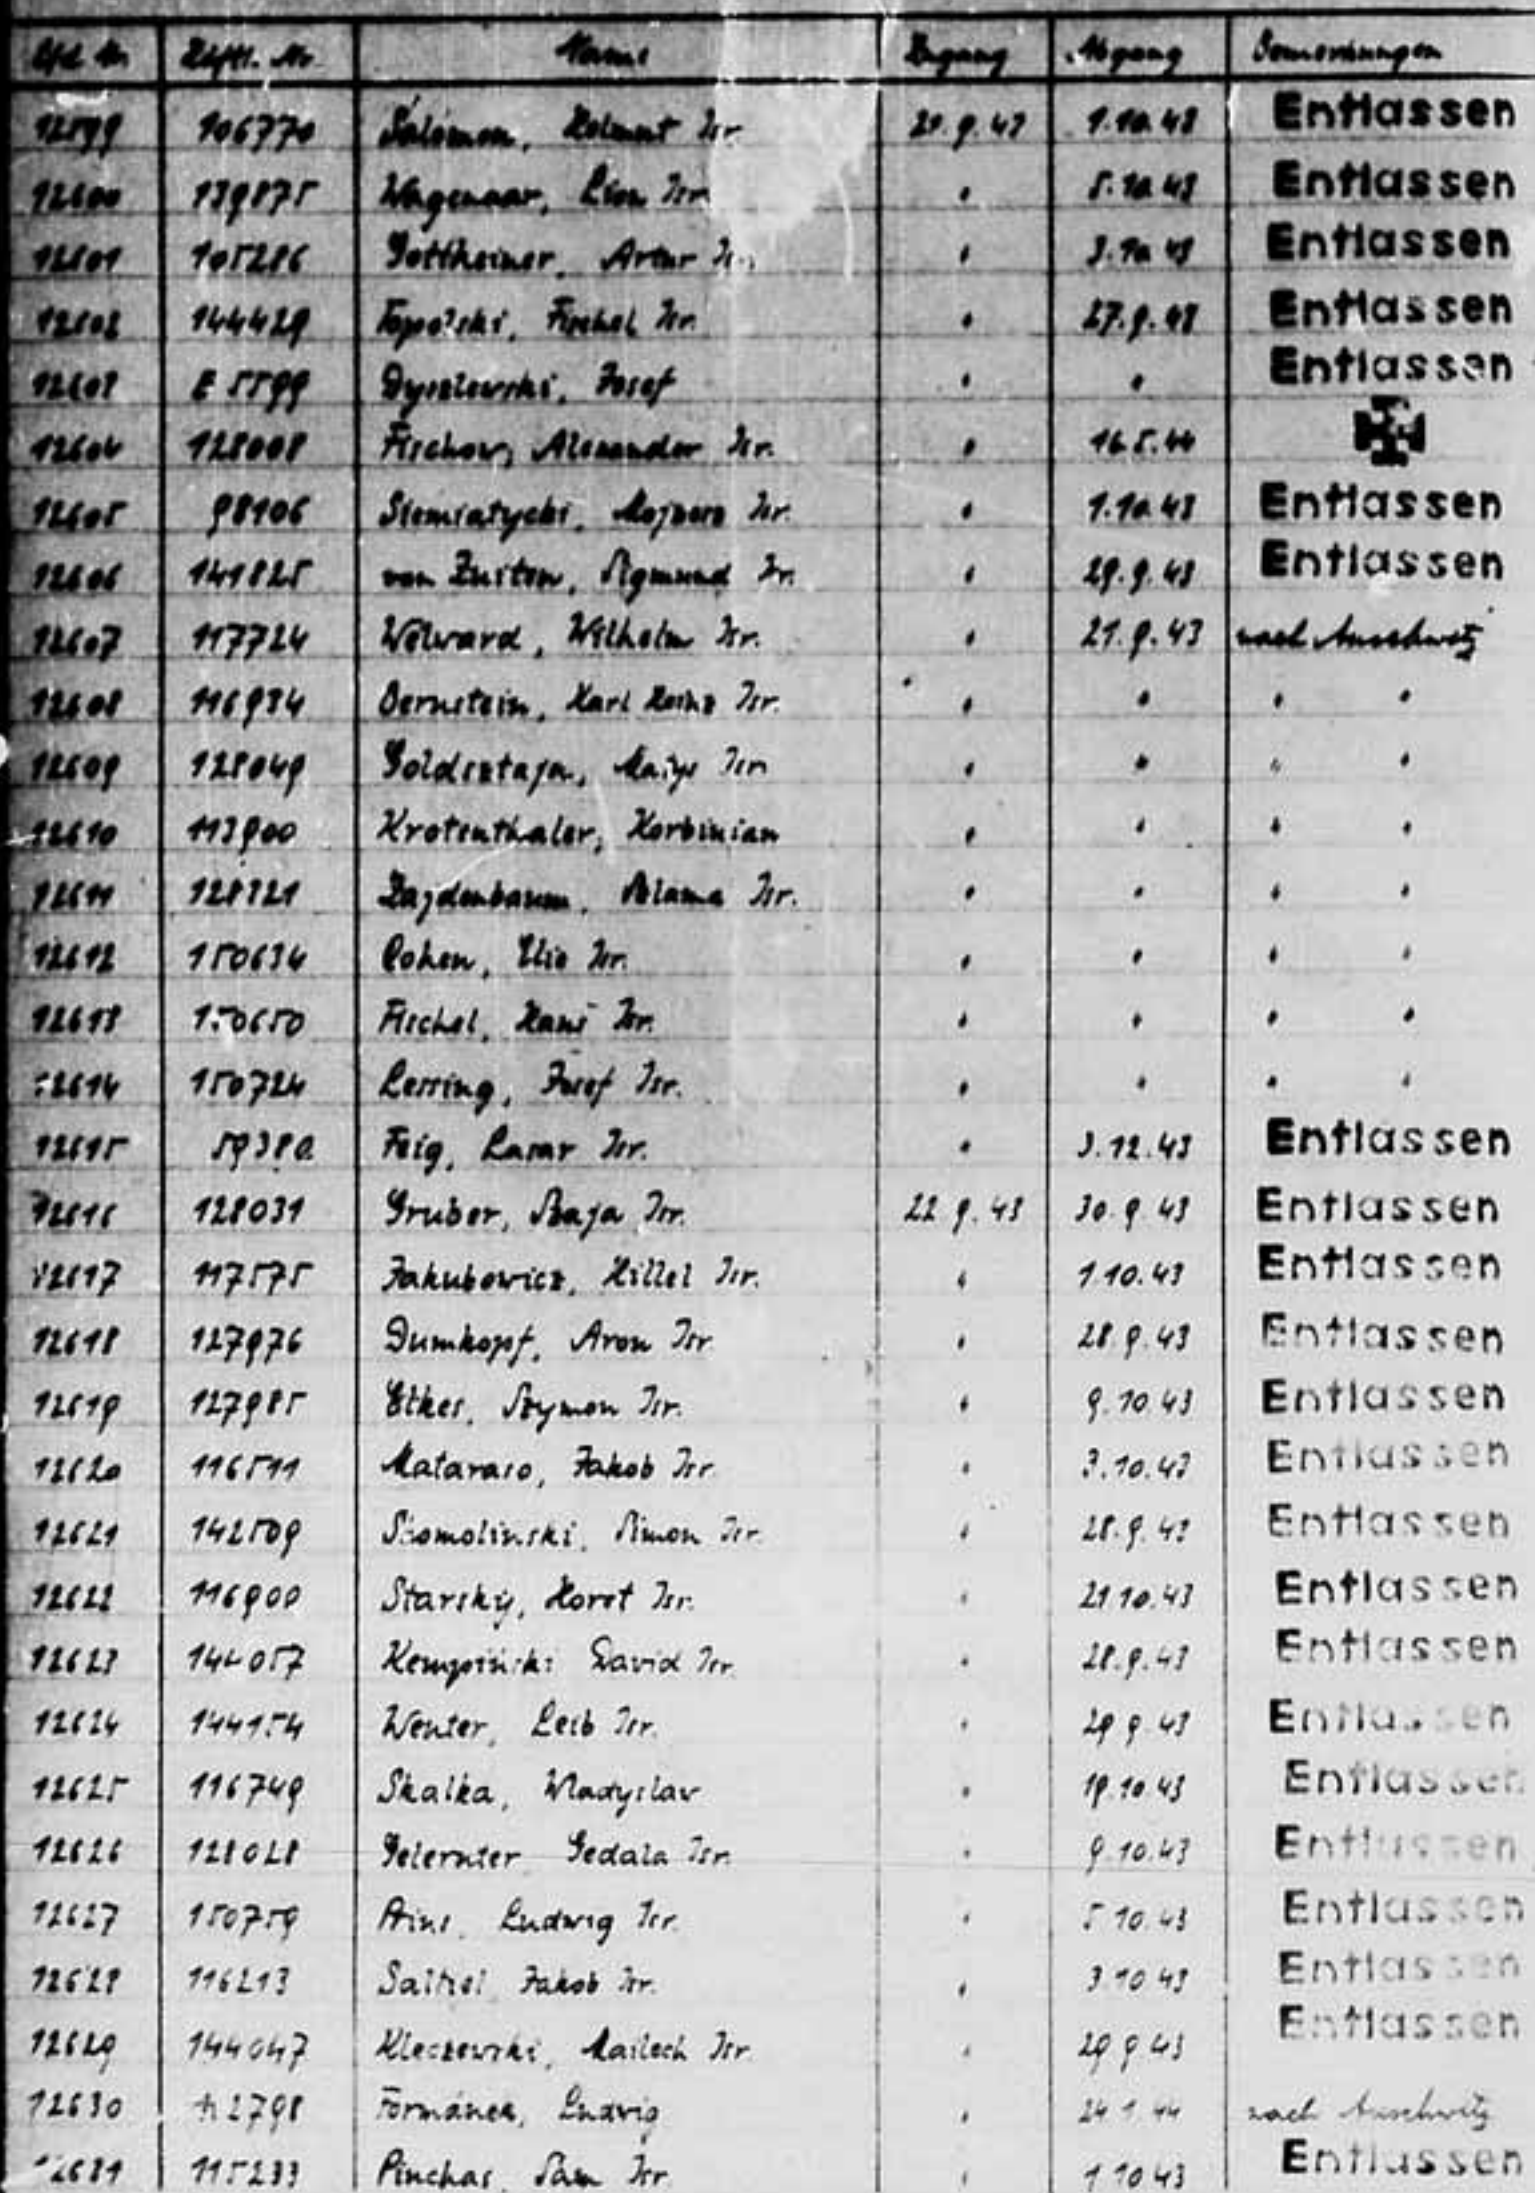 Lfd. Nr. Häftl. Nr. Name Zugang Abgang Bemerkungen
12599 106770 Salomon, Helmut Isr. 21.9.43 1.10.43 Entlassen
12600 139875 Wagenaar, Léon Isr. " 5.10.43 Entlassen
12601 105286 Gottheiner, Artur Isr. " 3.10.43 Entlassen
12602 144429 Topolski, Fischel Isr. " 27.9.43 Entlassen
12603 E 5599 Dyszlewski, Josef " " Entlassen
12604 128008 Fischow, Alexander Isr. " 16.5.44
12605 98106 Siemiatycki, Mojzesz Isr. " 1.10.43 Entlassen
12606 141825 van Zuiten, Sigmund Isr. " 29.9.43 Entlassen
12607 117724 Wilward, Wilhelm Isr. " 21.9.43 nach Auschwitz
12608 116934 Bernstein, Karl Heinz Isr. " " " "
12609 128049 Goldsztajn, Isr. " " " "
12610 113900 Krotenthaler, Korbinian " " " "
12611 128321 Zajdenbaum, Szlama Isr. " " " "
12612 150634 Cohen, Elie Isr. " " " "
12613 150650 Fischel, Hans Isr. " " " "
12614 150724 Lerring, Josef Isr. " " " "
12615 59380 Feig, Lazar Isr. " 3.12.43 Entlassen
12616 128031 Gruber, Szaja Isr. 22.9.43 30.9.43 Entlassen
12617 117575 Jakubowicz, Hillel Isr. " 1.10.43 Entlassen
12618 127976 Dumkopf, Aron Isr. " 28.9.43 Entlassen
12619 127985 Etkes, Szymon Isr. " 9.10.43 Entlassen
12620 116511 Mataraso, Jakob Isr. " 3.10.43 Entlassen
12621 142509 Skomolinski, Simon Isr. " 28.9.43 Entlassen
12622 116900 Starsky, Horst Isr. " 21.10.43 Entlassen
12623 144057 Kempinski David Isr. " 28.9.43 Entlassen
12624 144154 Wenter, Leib Isr. " 29.9.43 Entlassen
12625 116749 Skalka, Wladyslav " 19.10.43 Entlassen
12626 128028 Gelernter Gedala Isr. " 9.10.43 Entlassen
12627 150759 Ludwig Isr. " 5.10.43 Entlassen
12628 116213 Saltiel Jakob Isr. " 3.10.43 Entlassen
12629 144047 Kleczewski, Mailech Isr. " 29.9.43 Entlassen
12630 2798 Formánek, Ludvig " 24.1.44 nach Auschwitz
12631 115233 Pinchas, Sam Isr. " 1.10.43 Entlassen